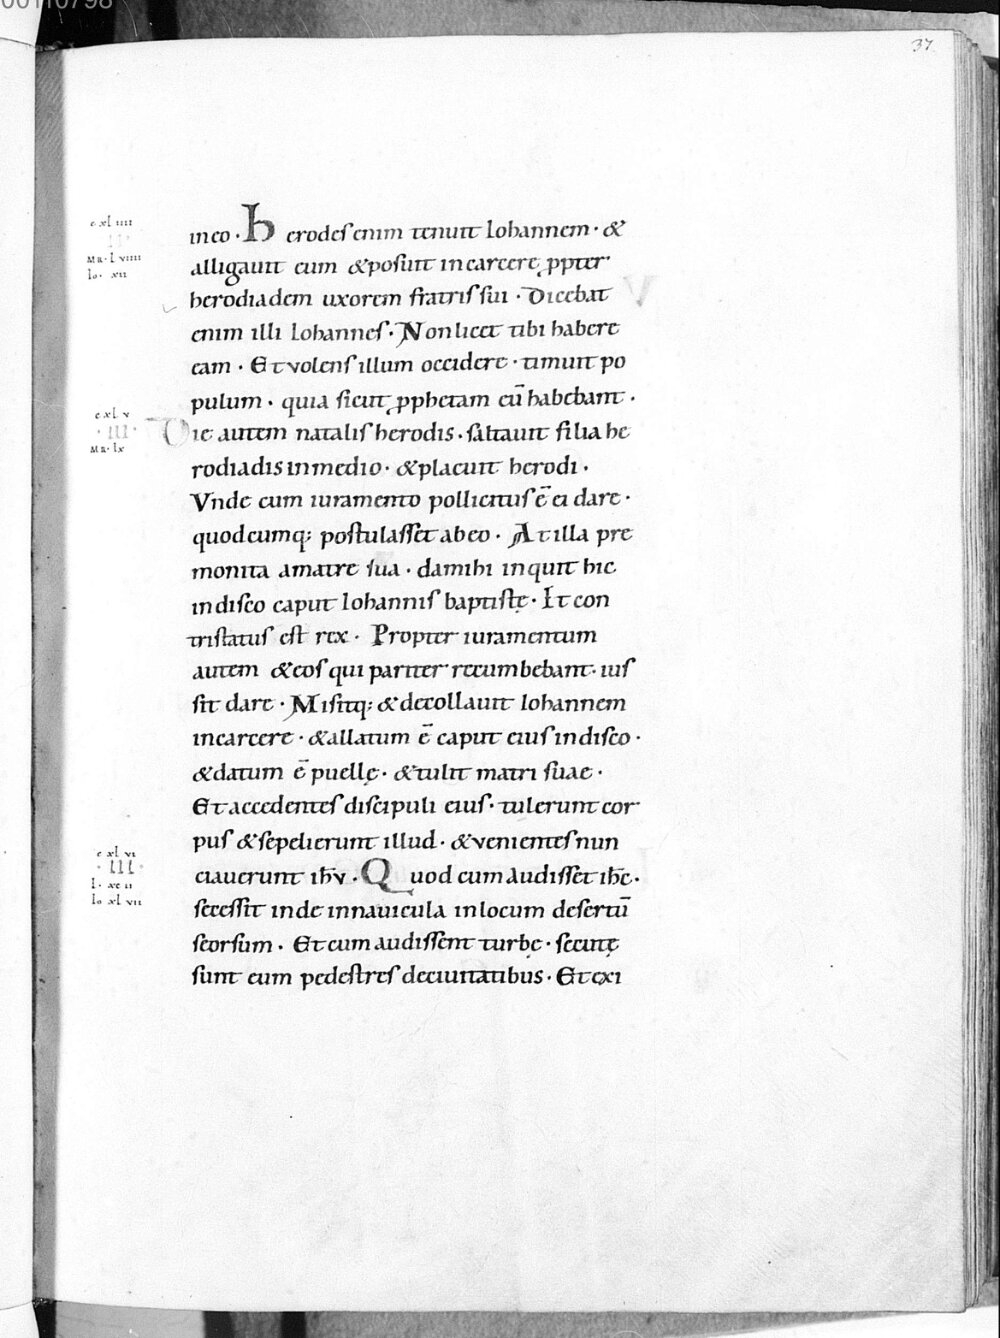 00110798
37
cxl iiii
II
MR · l viiii
Io · xii
in eo · Herodes enim tenuit Iohannem · &
alligauit eum &posuit incarcere ꝓpter
herodiadem uxorem fratris sui · Dicebat
enim illi Iohannes · Non licet tibi habere
eam · Et volens illum occidere · timuit po
pulum · quia sicut ꝓphetam eū habebant ·
cxl v
· III ·
MR · lx
Die autem natalis herodis · saltauit filia he
rodiadis inmedio · &placuit herodi ·
Vnde cum iuramento pollicitus ē ei dare ·
quodcumq; postulasset abeo · At illa pre
monita amatre sua · damihi inquit hic
indisco caput Iohannis baptistę · Et con
tristatus est rex · Propter iuramentum
autem &eos qui pariter recumbebant · ius
sit dare · Misitq; &decollauit Iohannem
incarcere · &allatum ē caput eius indisco ·
&datum ē puellę · &tulit matri suae ·
Et accedentes discipuli eius · tulerunt cor
pus &sepelierunt illud · &venientes nun
cxl vi
· III ·
l · xc ii
Io xl vii
ciauerunt ihv̄ · Quod cum audisset ihc̄ ·
secessit inde innauicula inlocum desertū
seorsum · Et cum audissent turbę · secutę
sunt eum pedestres deciuitatibus · Et exi